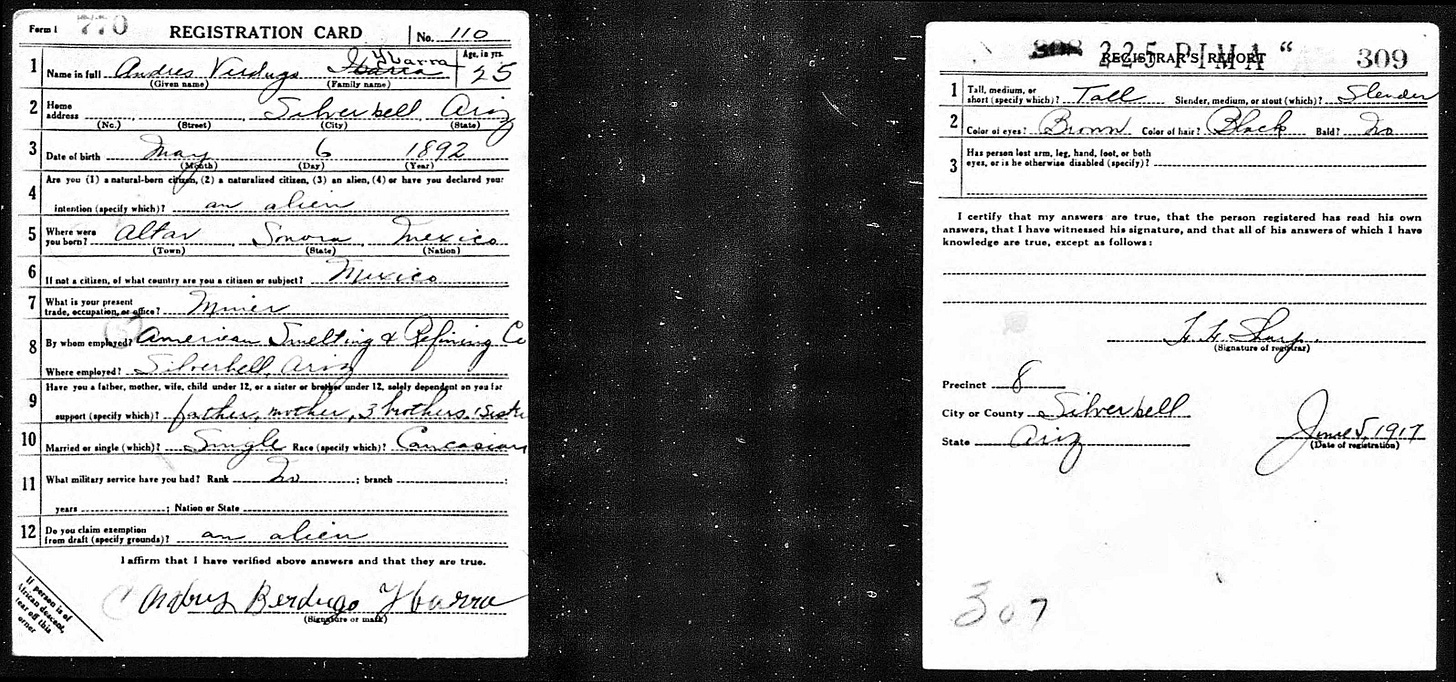 Form 1 770 REGISTRATION CARD No. 110
1 Name in full Andres Verdugo Ibarra Ybarra Age, in yrs. 25
(Given name) (Family name)
2 Home address Silverbell Ariz
(No.) (Street) (City) (State)
3 Date of birth May 6 1892
(Month) (Day) (Year)
4 Are you (1) a natural-born citizen, (2) a naturalized citizen, (3) an alien, (4) or have you declared your
intention (specify which)? an alien
5 Where were you born? Altar Sonora Mexico
(Town) (State) (Nation)
6 If not a citizen, of what country are you a citizen or subject? Mexico
7 What is your present trade, occupation, or office? Miner
8 By whom employed? American Smelting & Refining Co
Where employed? Silverbell, Ariz
9 Have you a father, mother, wife, child under 12, or a sister or brother under 12, solely dependent on you for
support (specify which)? father, mother, 3 brothers, 1 Siste
10 Married or single (which)? Single Race (specify which)? Caucasian
11 What military service have you had? Rank No ; branch ;
years ; Nation or State
12 Do you claim exemption from draft (specify grounds)? an alien
I affirm that I have verified above answers and that they are true.
Andres Berdugo Ybarra
(Signature or mark)
If person is of
African descent,
tear off this
corner
225 PIMA "
REGISTRAR'S REPORT 309
1 Tall, medium, or short (specify which)? Tall Slender, medium, or stout (which)? Slender
2 Color of eyes? Brown Color of hair? Black Bald? No
3 Has person lost arm, leg, hand, foot, or both
eyes, or is he otherwise disabled (specify)?
I certify that my answers are true, that the person registered has read his own
answers, that I have witnessed his signature, and that all of his answers of which I have
knowledge are true, except as follows:
H. H. Sharp.
(Signature of registrar)
Precinct 8
City or County Silverbell
State Ariz June 5, 1917
(Date of registration)
307